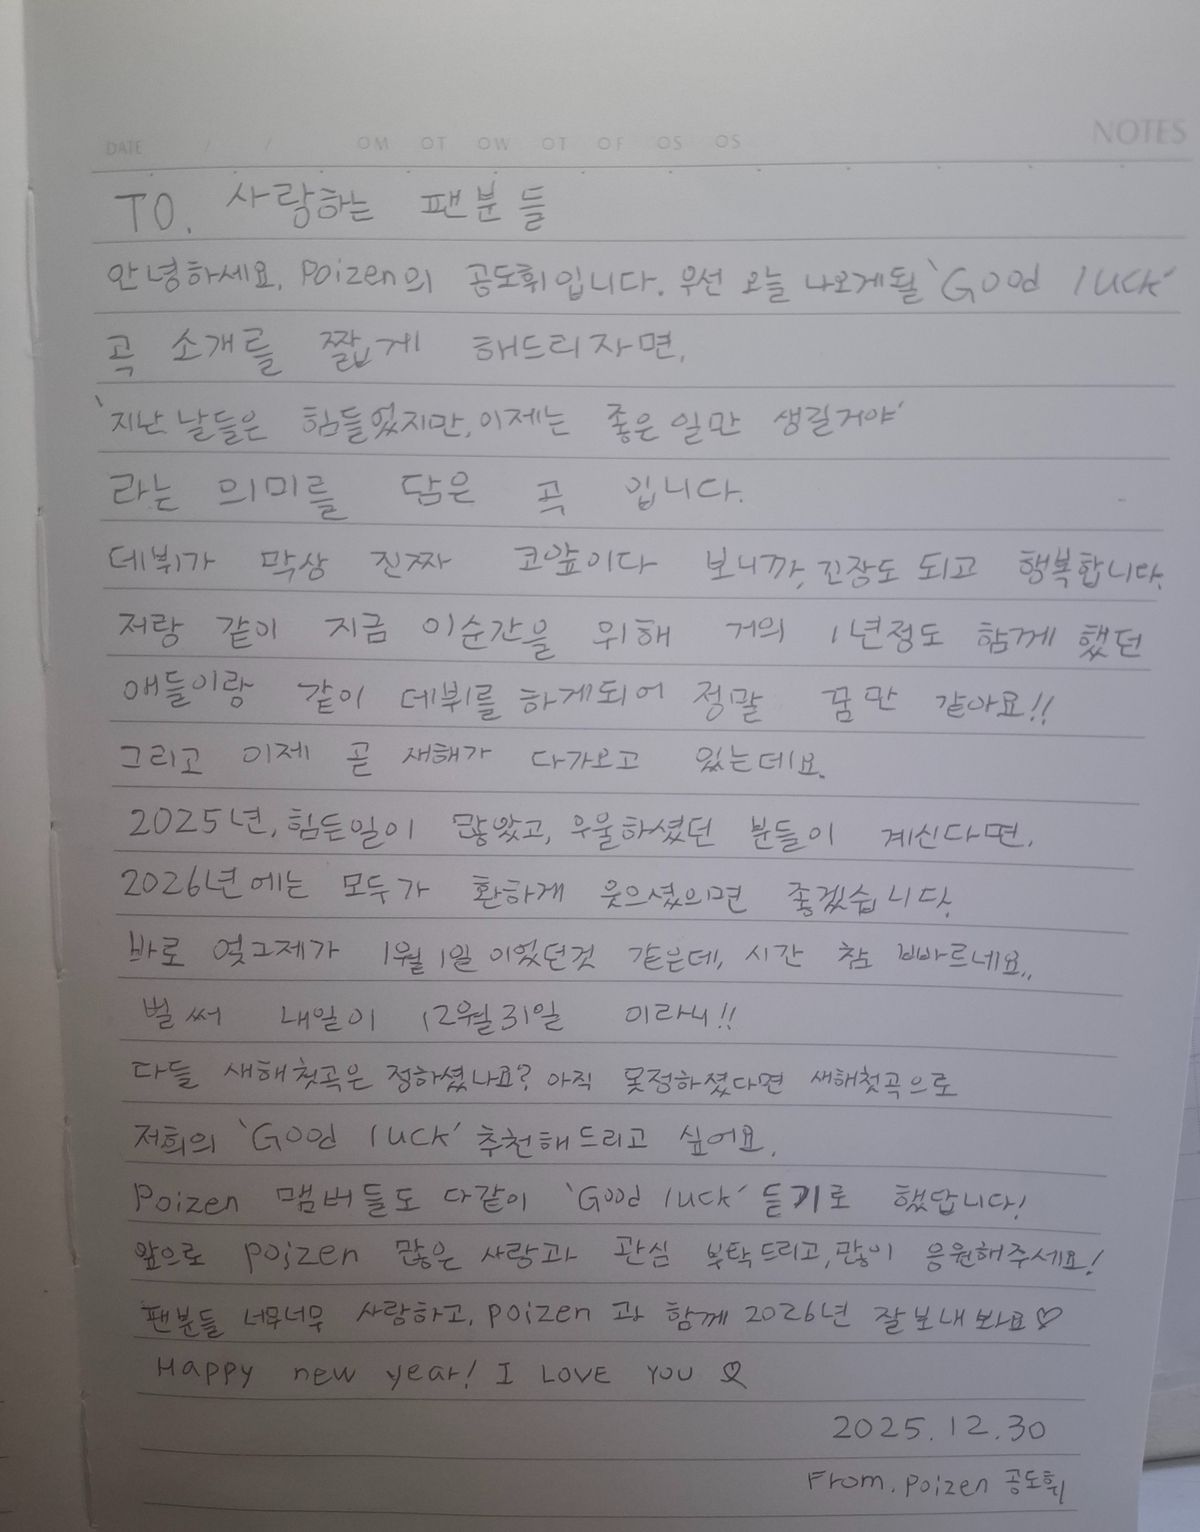 DATE / / OM OT OW OT OF OS OS NOTES
TO. 사랑하는 팬분들
안녕하세요, Poizen의 공도휘입니다. 우선 오늘 나오게될 'Good luck'
곡 소개를 짧게 해드리자면,
'지난 날들은 힘들었지만, 이제는 좋은 일만 생길거야'
라는 의미를 담은 곡 입니다.
데뷔가 막상 진짜 코앞이다 보니까, 긴장도 되고 행복합니다.
저랑 같이 지금 이순간을 위해 거의 1년정도 함께 했던
애들이랑 같이 데뷔를 하게되어 정말 꿈만 같아요!!
그리고 이제 곧 새해가 다가오고 있는데요.
2025년, 힘든일이 많았고, 우울하셨던 분들이 계신다면,
2026년에는 모두가 환하게 웃으셨으면 좋겠습니다.
바로 엊그제가 1월 1일 이었던것 같은데, 시간 참 빠르네요..
벌써 내일이 12월 31일 이라니!!
다들 새해첫곡은 정하셨나요? 아직 못정하셨다면 새해첫곡으로
저희의 'Good luck' 추천해드리고 싶어요.
Poizen 맴버들도 다같이 'Good luck' 듣기로 했답니다!
앞으로 poizen 많은 사랑과 관심 부탁드리고, 많이 응원해주세요!
팬분들 너무너무 사랑하고, poizen 과 함께 2026년 잘보내봐요♡
Happy new year! I LOVE YOU
2025. 12. 30
From. poizen 공도휘